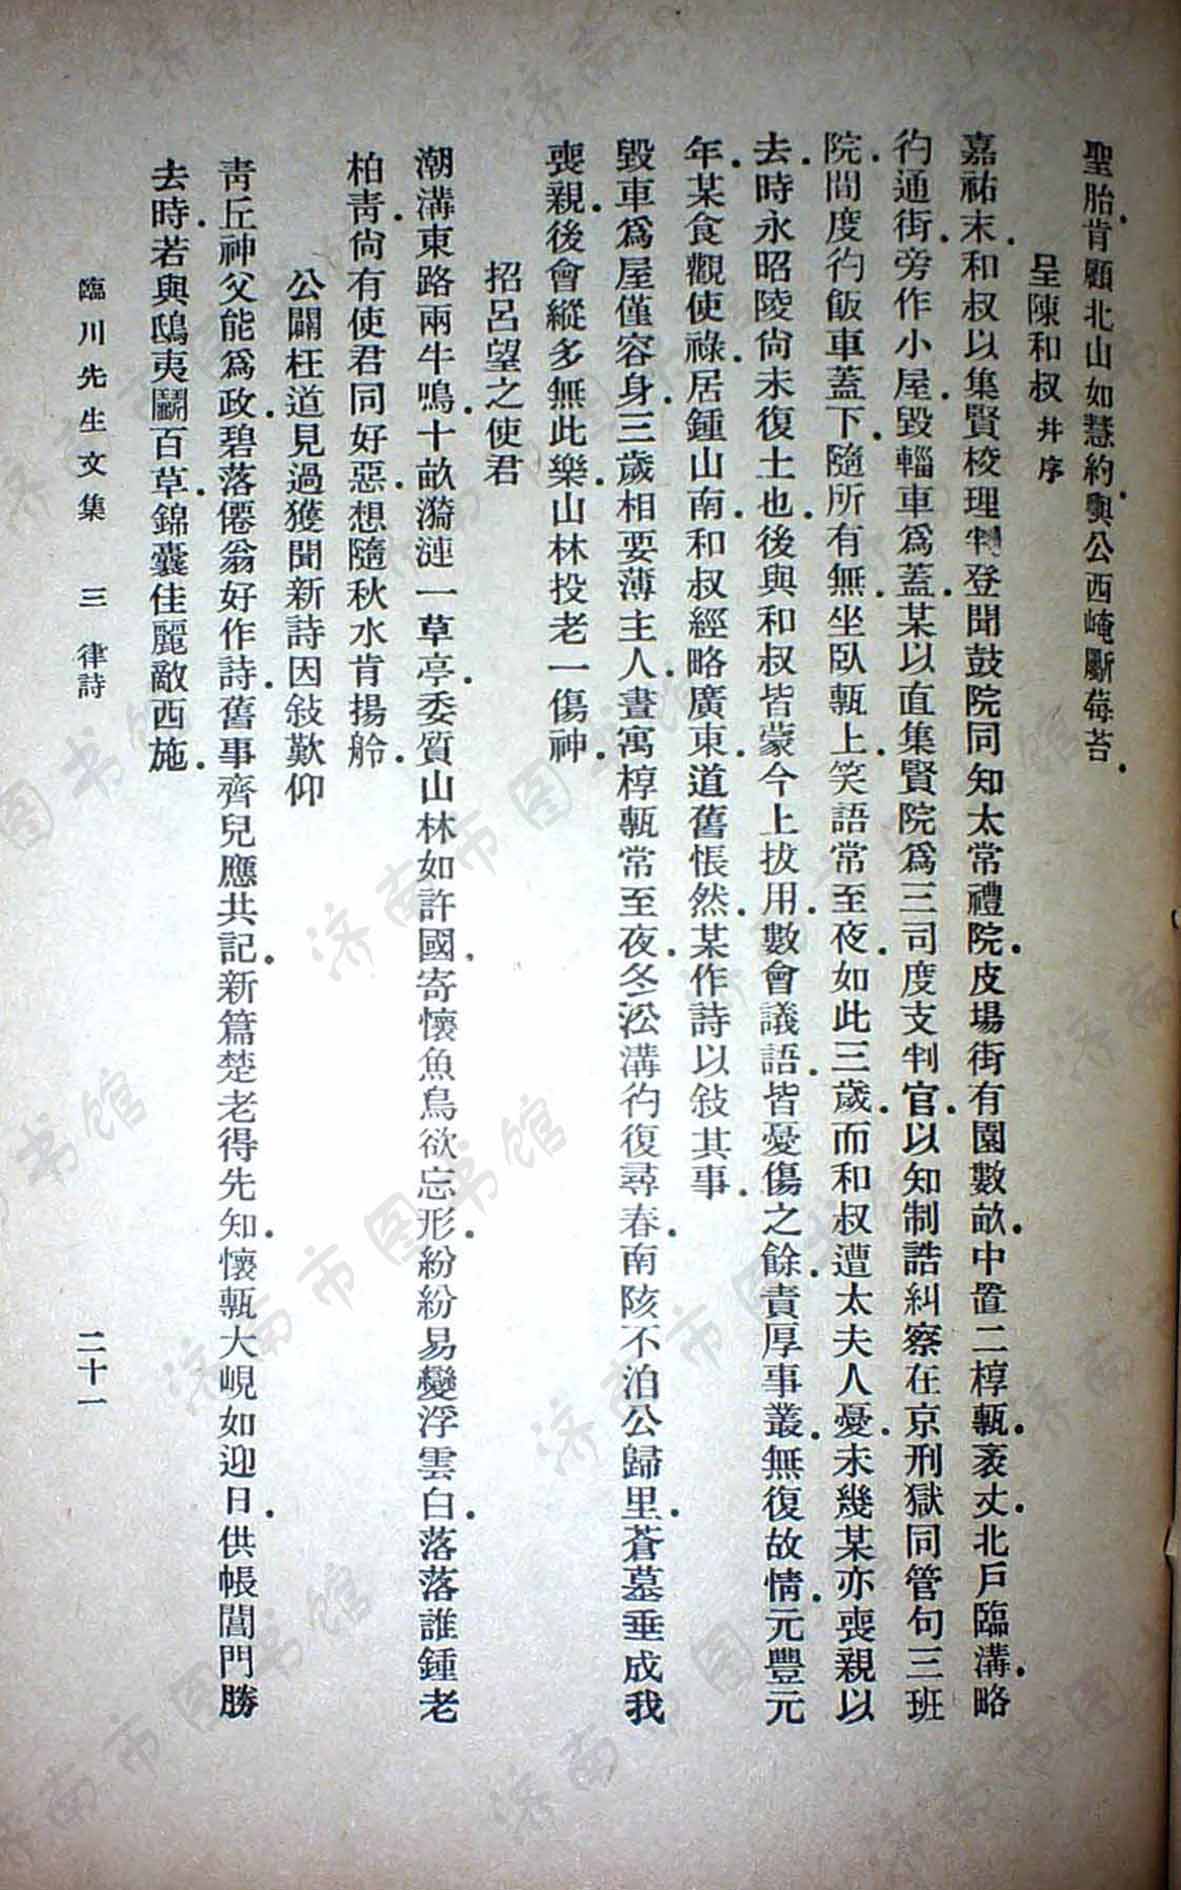 聖胎肯顧北山如慧約.與公西崦斸莓苔.
呈陳和叔 并序
嘉祐末.和叔以集賢校理判登聞鼓院同知太常禮院.皮場街有園數畝.中置二樟瓻.袤丈.北戶臨溝.略
彴通街.旁作小屋.毀輜車爲蓋.某以直集賢院爲三司度支判官.以知制誥糾察在京刑獄同管句三班
院.間度彴飯車蓋下.隨所有無.坐臥瓻上.笑語常至夜.如此三歲.而和叔遭太夫人憂.未幾某亦喪親以
去.時永昭陵尙未復土也.後與和叔皆蒙今上拔用.數會議語.皆憂傷之餘.責厚事叢.無復故情.元豐元
年.某食觀使祿.居鍾山南.和叔經略廣東.道舊悵然.某作詩以敍其事.
毀車爲屋僅容身.三歲相要薄主人.晝寓椁瓻常至夜.冬沿溝彴復尋春.南陔不洎公歸里.蒼墓垂成我
喪親.後會縱多無此樂.山林投老一傷神.
招呂望之使君
潮溝東路兩牛鳴.十畝漪漣一草亭.委質山林如許國.寄懷魚鳥欲忘形.紛紛易變浮雲白.落落誰鍾老
柏靑.尙有使君同好惡.想隨秋水肯揚舲.
公闢枉道見過獲聞新詩因敍歎仰
靑丘神父能爲政.碧落僊翁好作詩.舊事齊兒應共記.新篇楚老得先知.懷瓻大峴如迎日.供帳閶門勝
去時.若與鴟夷鬭百草.錦囊佳麗敵西施.
臨川先生文集 三 律詩 二十一